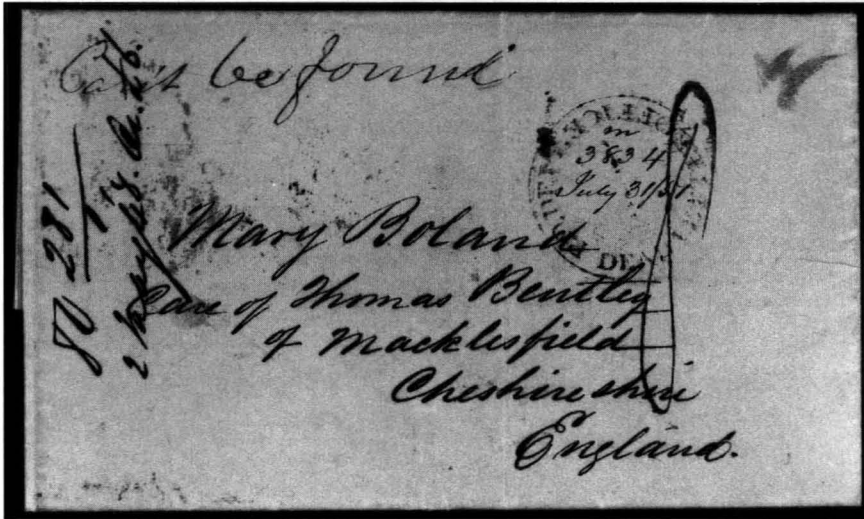 Can't be found
3834
July 31/51
Mary Boland
Care of Thomas Bentley
of Macklesfield
Cheshireshire
England.
80 281
2